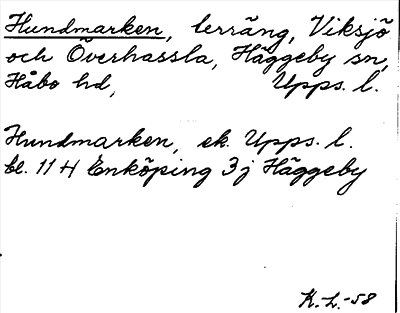 Hundmarken, terräng, Viksjö
och Överhassla, Häggeby sn,
Håbo hd, Upps. l.
Hundmarken, ek. Upps. l.
bl. 11 H Enköping 3j Häggeby
K.L.-58